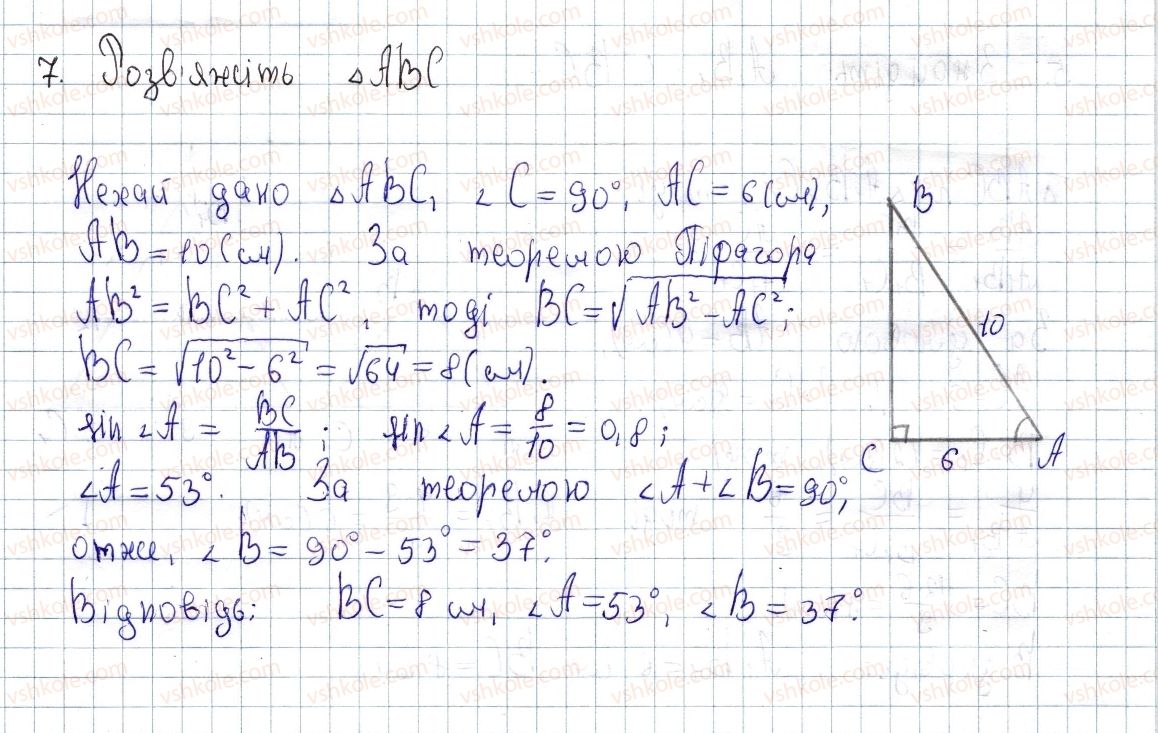 7. Розв'яжіть △ABC
Нехай дано △ABC, ∠C = 90°, AC = 6 (см),
AB = 10 (см). За теоремою Піфагора
AB² = BC² + AC², тоді BC = √(AB² – AC²);
BC = √(10² – 6²) = √64 = 8 (см).
sin ∠A = BC/AB; sin ∠A = 8/10 = 0,8;
∠A = 53°. За теоремою ∠A + ∠B = 90°,
отже, ∠B = 90° – 53° = 37°.
Відповідь: BC = 8 см, ∠A = 53°, ∠B = 37°.
B
10
C 6 A
vshkole.com